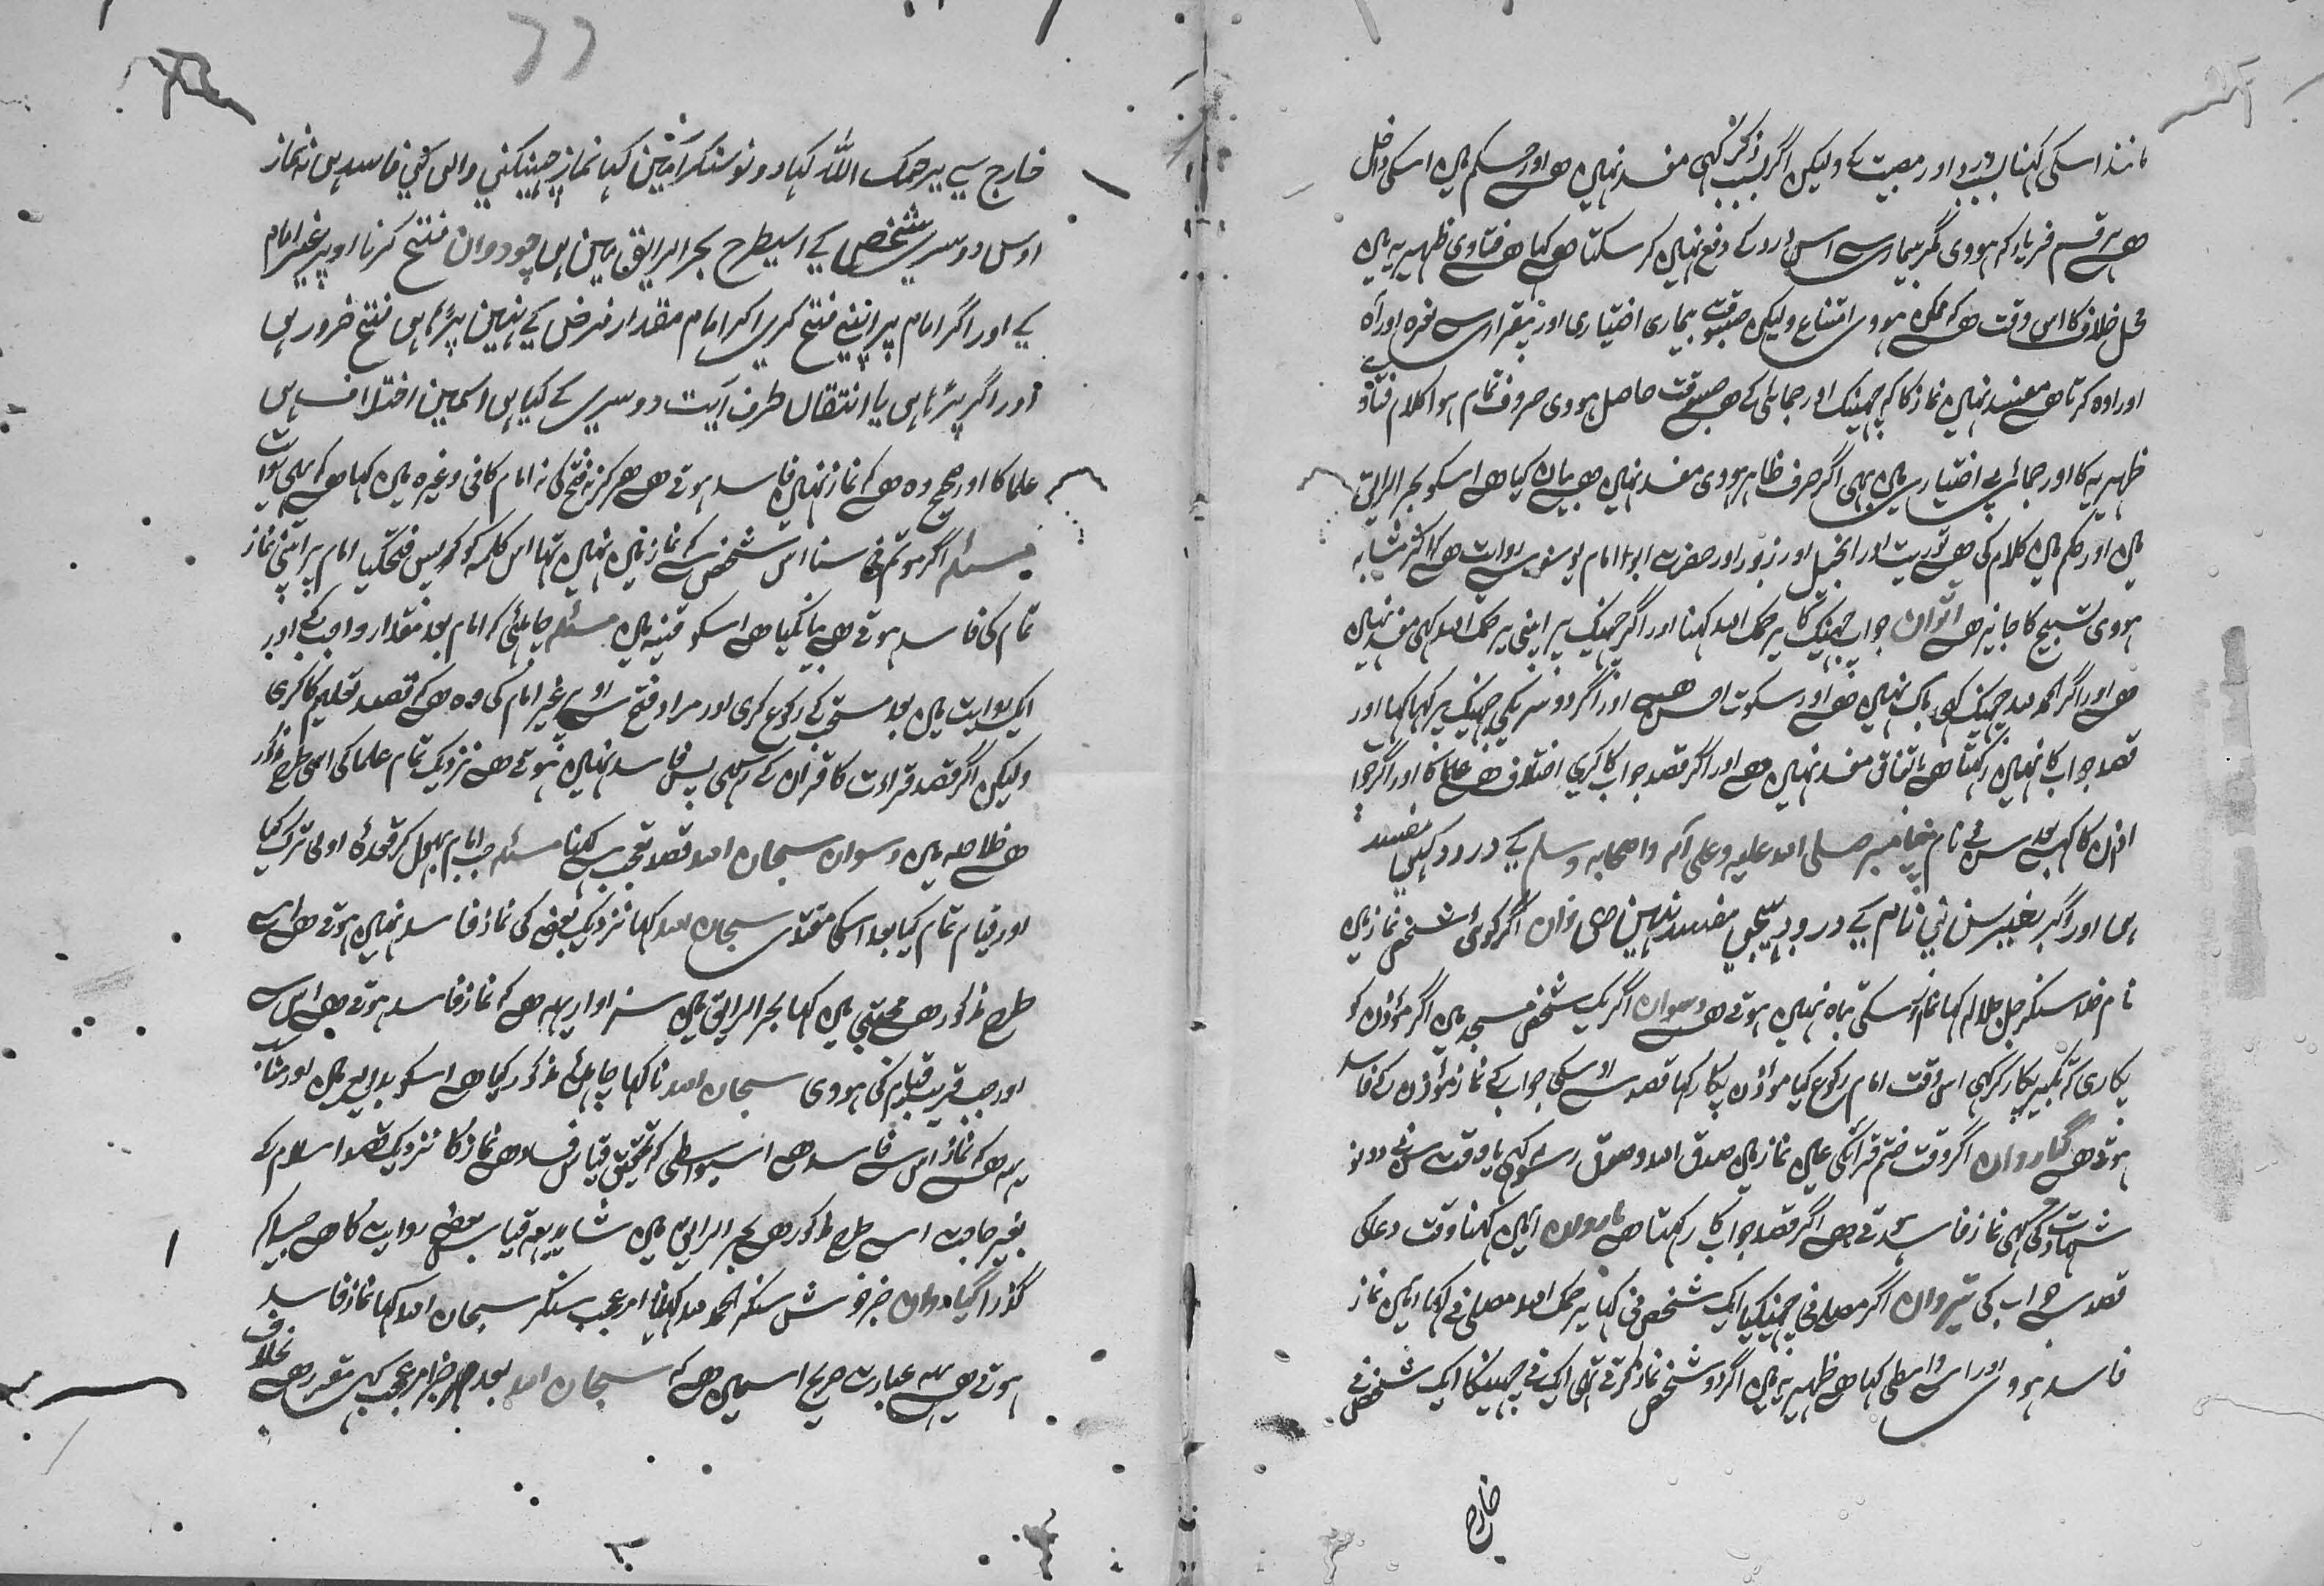 مانند اسکی کہنا بسبب درد اور مصیبت کے ولیکن اگر بسبب ذکر کہی مفسد نہیں ہے اور حکم میں اسکی داخل
ہے ہر قسم فریاد کہ ہووی مگر بیماری سے اس درد کے دفع نہیں کر سکتا ہے کہا ہے فتاوی ظہیریہ میں
محل خلاف کا اس وقت ہے کہ ممکن ہووی امتناع ولیکن جسوقت بیماری اختیاری اور بیقراری سے نعرہ اور آہ
اور اوہ کرتا ہے مفسد نہیں نماز کا کہ چھینک اور جمائی کے ہے جسوقت حاصل ہووی حروف تمام ہوا کلام فتاوی
ظہیریہ کا اور جمائی بے اختیاری میں بہی اگر حرف ظاہر ہووی مفسد نہیں ہے بیان کیا ہے اسکو بحر الرایق
میں اور حکم میں کلام کی ہے توریت اور انجیل اور زبور اور حضرت امام ابو یوسف سے روایت ہے کہ اگر مشابہ
ہووی تسبیح کا جائز ہے اتوان جواب چھینک کا یرحمک اللہ کہنا اور اگر چھینک پر اپنی یرحمک اللہ کہی مفسد نہیں
ہے اور اگر الحمد للہ چھینک کہی باک نہیں ہے اور سکوت احسن ہے اور اگر دوسریکی چھینک پر کہا کہا اور
قصد جواب کا نہیں رکہتا ہے باتفاق مفسد نہیں ہے اور اگر قصد جواب کا کری اختلاف ہے علما کا اور اگر جواب
اذان کا کہی بعد سننے نام پیغامبر صلی اللہ علیہ وعلی آلہ واصحابہ وسلم کے درود کہیں مفسد
ہی اور اگر بغیر سننی نام کے درود بہیجی مفسد نہین ہی نوان اگر کوئی شخص نماز میں
نام خدا سنکر جل جلالہ کہا نماز اوسکی تباہ نہیں ہوتی ہے دسوان اگر یک شخص مسجد میں اگر مؤذن کو
پکاری کہ تکبیر پکار کر کہی اس وقت امام رکوع کیا مؤذن پکار کہا قصد سے اوسکی جواب کے نماز مؤذن کے فاسد
ہوتی ہے گیاروان اگر وقت ختم قرآنکی عین نماز میں صدق اللہ وصدق رسولہ کہی یا وقت سننے دونو
شہادت کی کہی نماز فاسد ہوتی ہے اگر قصد جواب کا رکہتا ہے باروان آمین کہنا وقت دعا کی
قصد سے جواب کی تیروان اگر مصلی نی چھینکیا ایک شخص نی کہا یرحمک اللہ مصلی نے کہا آمین نماز
فاسد ہووی اور اسی واسطی کہا ہے ظہیریہ میں اگر دو شخص نماز کرتی تہی ایک نے چھینکا ایک شخص نے
خارج
خارج سے یرحمک اللہ کہا دونو سنکر آمین کہا نماز چھینکنی والی کی فاسد ہی نہ نماز
اوس دوسری شخص کے اسیطرح بحر الرایق مین ہی چودوان فتح کرنا اوپر غیر امام
کے اور اگر امام پر اپنے فتح کری اگر امام مقدار فرض کے نہین پڑہا ہی فتح ضرور ہی
اور اگر پڑہا ہی یا انتقال طرف آیت دوسری کے کیا ہی اسمین اختلاف ہی
علما کا اور صحیح وہ ہے کہ نماز نہیں فاسد ہوتی ہے ہرگز نہ فتح کی نہ امام کافی وغیرہ میں کہا ہے کہ یہی روایت
مسئلہ اگر موتم نی سنا اس شخص سے کہ نماز میں نہیں تہا اس کلمہ کو پس فتح کیا امام پر اپنی نماز
تمام کی فاسد ہوتی ہے بیان کیا ہے اسکو قنیہ میں مسئلہ چاہئی کہ امام بعد مقدار واجب کے اور
ایک روایت میں بعد مستحب کے رکوع کری اور مراد فتح سے اوپر غیر امام کی وہ ہے کہ قصد تعلیم کا کری
ولیکن اگر قصد قراءت کا قرآن کے رہی پس فاسد نہیں ہوتی ہے نزدیک تمام علما کی اسی طرح مذکور
ہے خلاصہ میں پندروان سبحان اللہ قصد تعجب سے کہنا مسئلہ جب امام بہول کر قعدہ اولی ترک کیا
اور قیام تمام کیا بعد اسکا مقتدی سبحان اللہ کہا نزدیک بعض کی نماز فاسد نہیں ہوتی ہے اسی
طرح مذکور ہے مجتبی میں کہا بحر الرایق میں سزاوار یہ ہے کہ نماز فاسد ہوتی ہے اس سے
اور جب قریب قیام کی ہووی سبحان اللہ نا کہا چاہئی مذکور کیا ہے اسکو بدایہ میں اور مناسب
یہ ہے کہ نماز اس سے فاسد ہے اسیواسطی کہ تحقیق قیاس فساد ہے نماز کا نزدیک قصد اسلام کے
بغیر حاجت اسی طرح مذکور ہے بحر الرایق میں شاید یہ قیاس بعضے روایت کا ہے جیسا کہ
گذرا گیا سولوان خبر خوش سنکر الحمد للہ کہنا یا امر عجیب سنکر سبحان اللہ کہا نماز فاسد
ہوتی ہے یہ عبارت صریح اسمیں ہے کہ سبحان اللہ بعد خبر امر عجیب کی مقرر ہے بخلاف